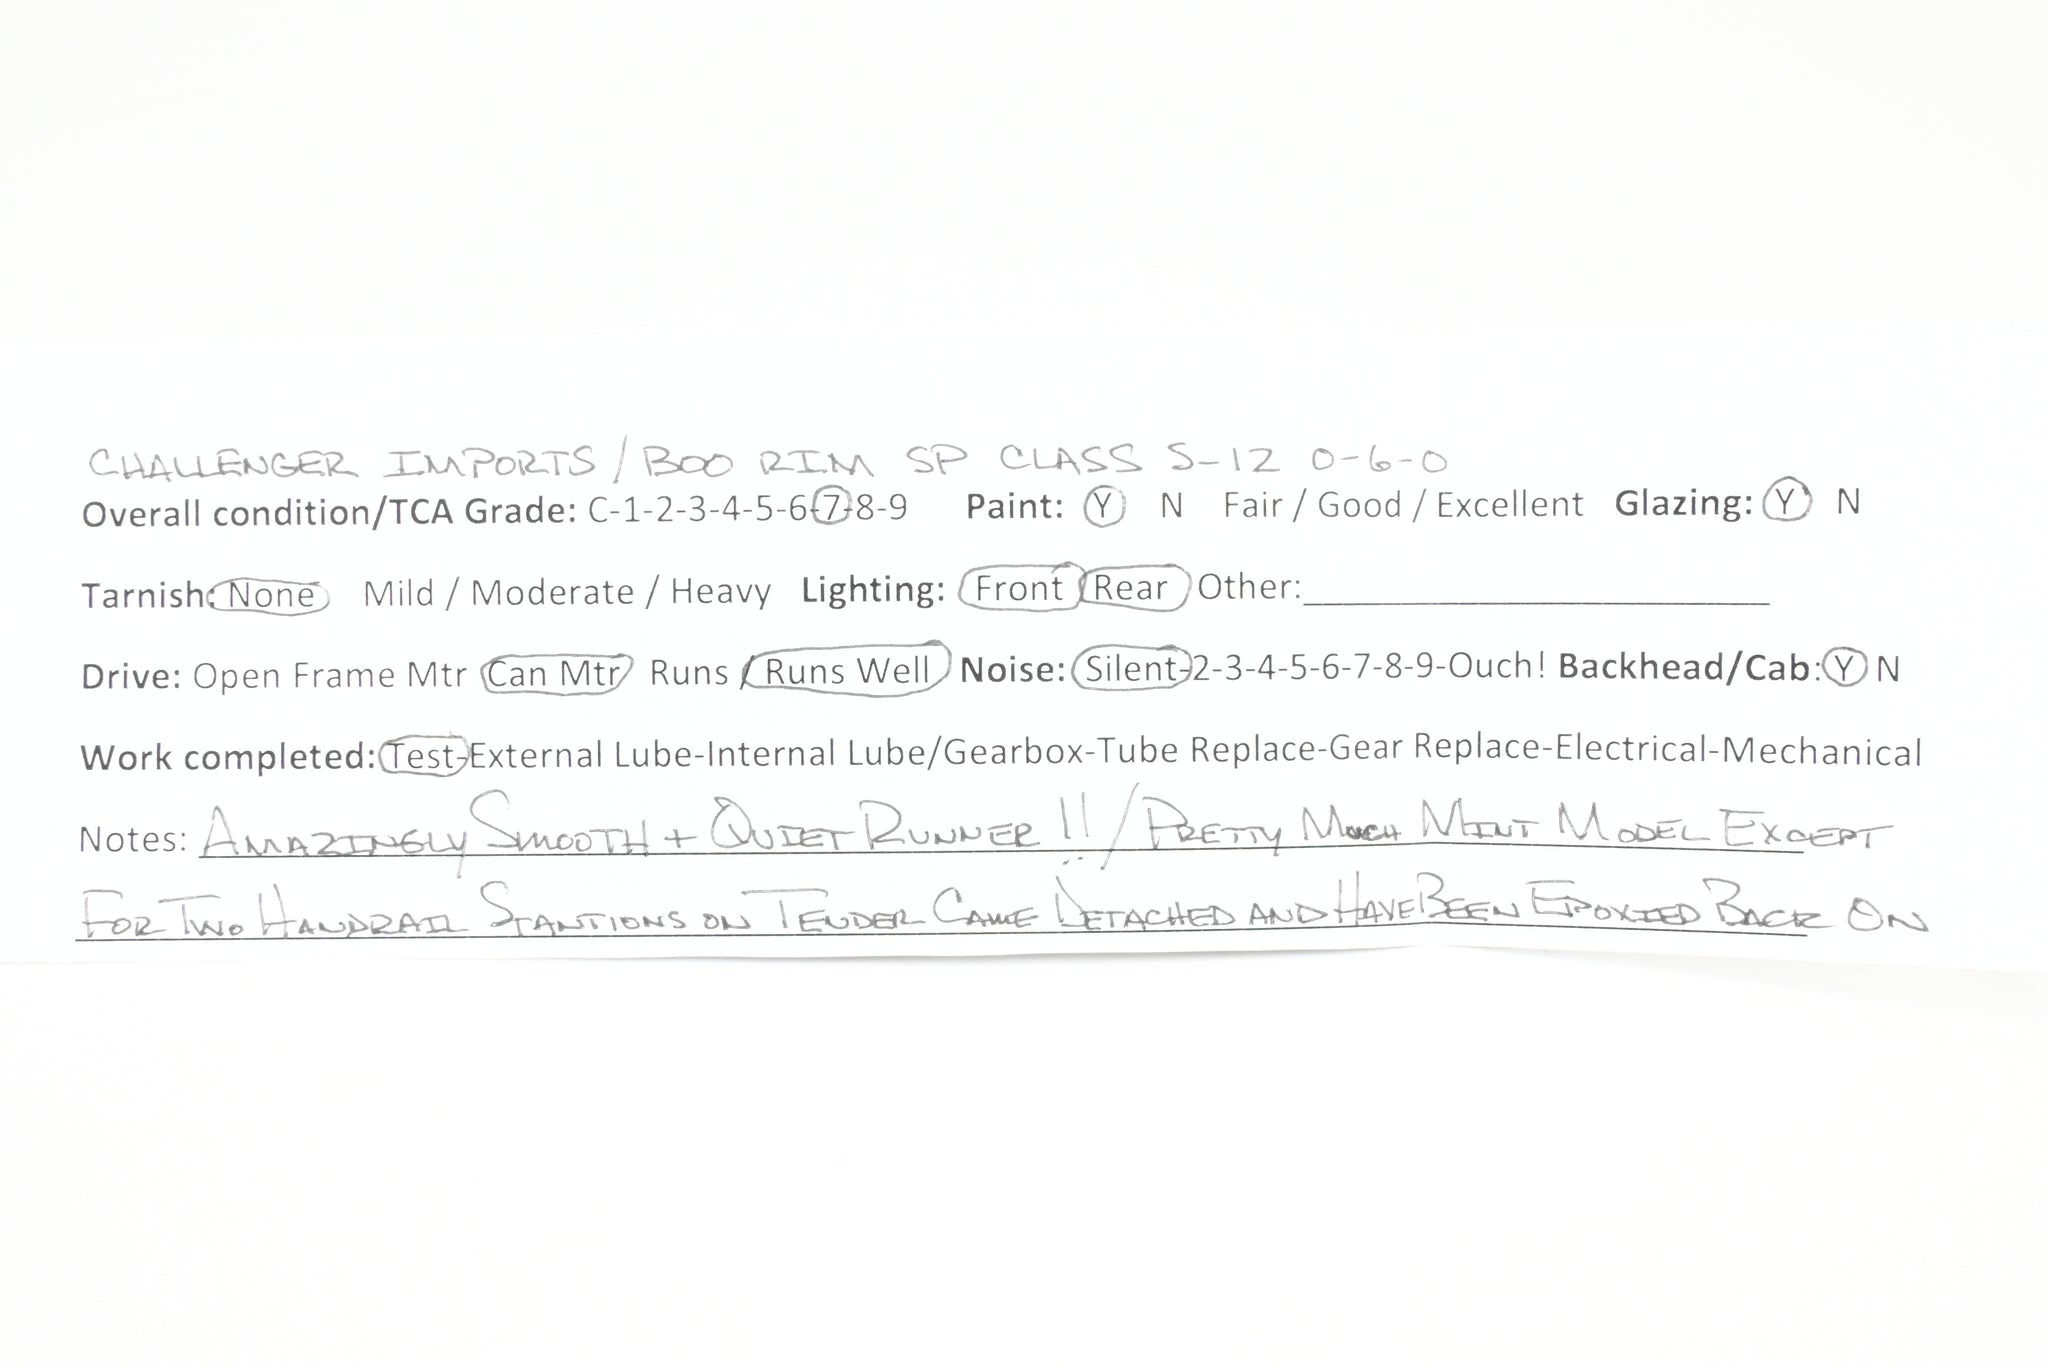 CHALLENGER IMPORTS / BOO RIM SP CLASS S-12 0-6-0
Overall condition/TCA Grade: C-1-2-3-4-5-6-7-8-9 Paint: Y N Fair / Good / Excellent Glazing: Y N
Tarnish: None Mild / Moderate / Heavy Lighting: Front Rear Other:
Drive: Open Frame Mtr Can Mtr Runs / Runs Well Noise: Silent-2-3-4-5-6-7-8-9-Ouch! Backhead/Cab: Y N
Work completed: Test-External Lube-Internal Lube/Gearbox-Tube Replace-Gear Replace-Electrical-Mechanical
Notes: AMAZINGLY SMOOTH + QUIET RUNNER !! / PRETTY MUCH MINT MODEL EXCEPT
FOR TWO HANDRAIL STANTIONS ON TENDER CAME DETACHED AND HAVE BEEN EPOXIED BACK ON